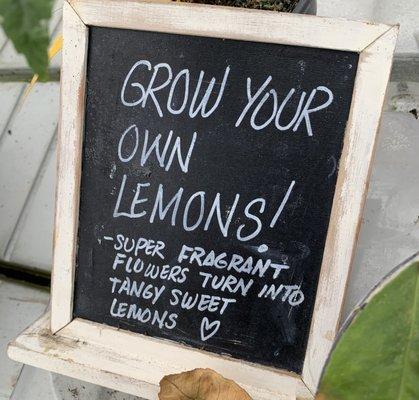 GROW YOUR
OWN
LEMONS!
-SUPER FRAGRANT
FLOWERS TURN INTO
TANGY SWEET
LEMONS ♡